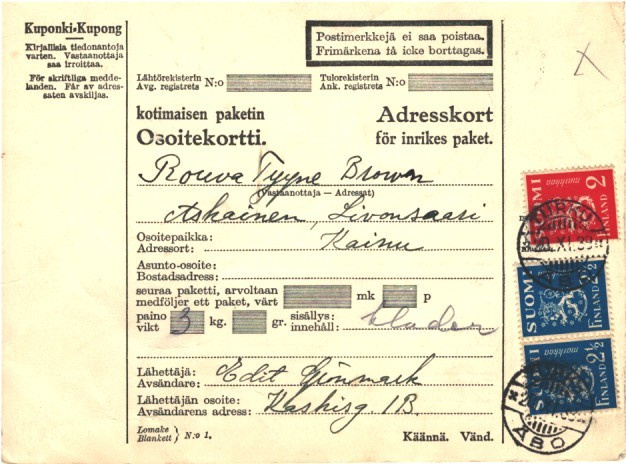 Kuponki-Kupong
Kirjallisia tiedonantoja
varten. Vastaanottaja
saa irroittaa.
För skriftliga medde-
landen. Får av adres-
saten avskiljas.
Postimerkkejä ei saa poistaa.
Frimärkena få icke borttagas.
Lähtörekisterin
Avg. registrets N:o
Tulorekisterin
Ank. registrets N:o
kotimaisen paketin
Osoitekortti.
Adresskort
för inrikes paket.
Rouva Tyyne Brown
(Vastaanottaja — Adressat)
Askainen, Livonsaari
Osoitepaikka:
Adressort:
Kainu
Asunto-osoite:
Bostadsadress:
seuraa paketti, arvoltaan
medföljer ett paket, värt mk p
paino
vikt 3 kg. gr. sisällys:
innehåll: kläder
Lähettäjä:
Avsändare: Edit Grönmark
Lähettäjän osoite:
Avsändarens adress: Kaskisg. 1B.
Lomake
Blankett } N:o 1.
Käännä. Vänd.
SUOMI
markkaa
2
FINLAND
TURKU
XI.39
ÅBO
SUOMI
FINLAND 2½
markkaa
FINLAND 2½
ÅBO